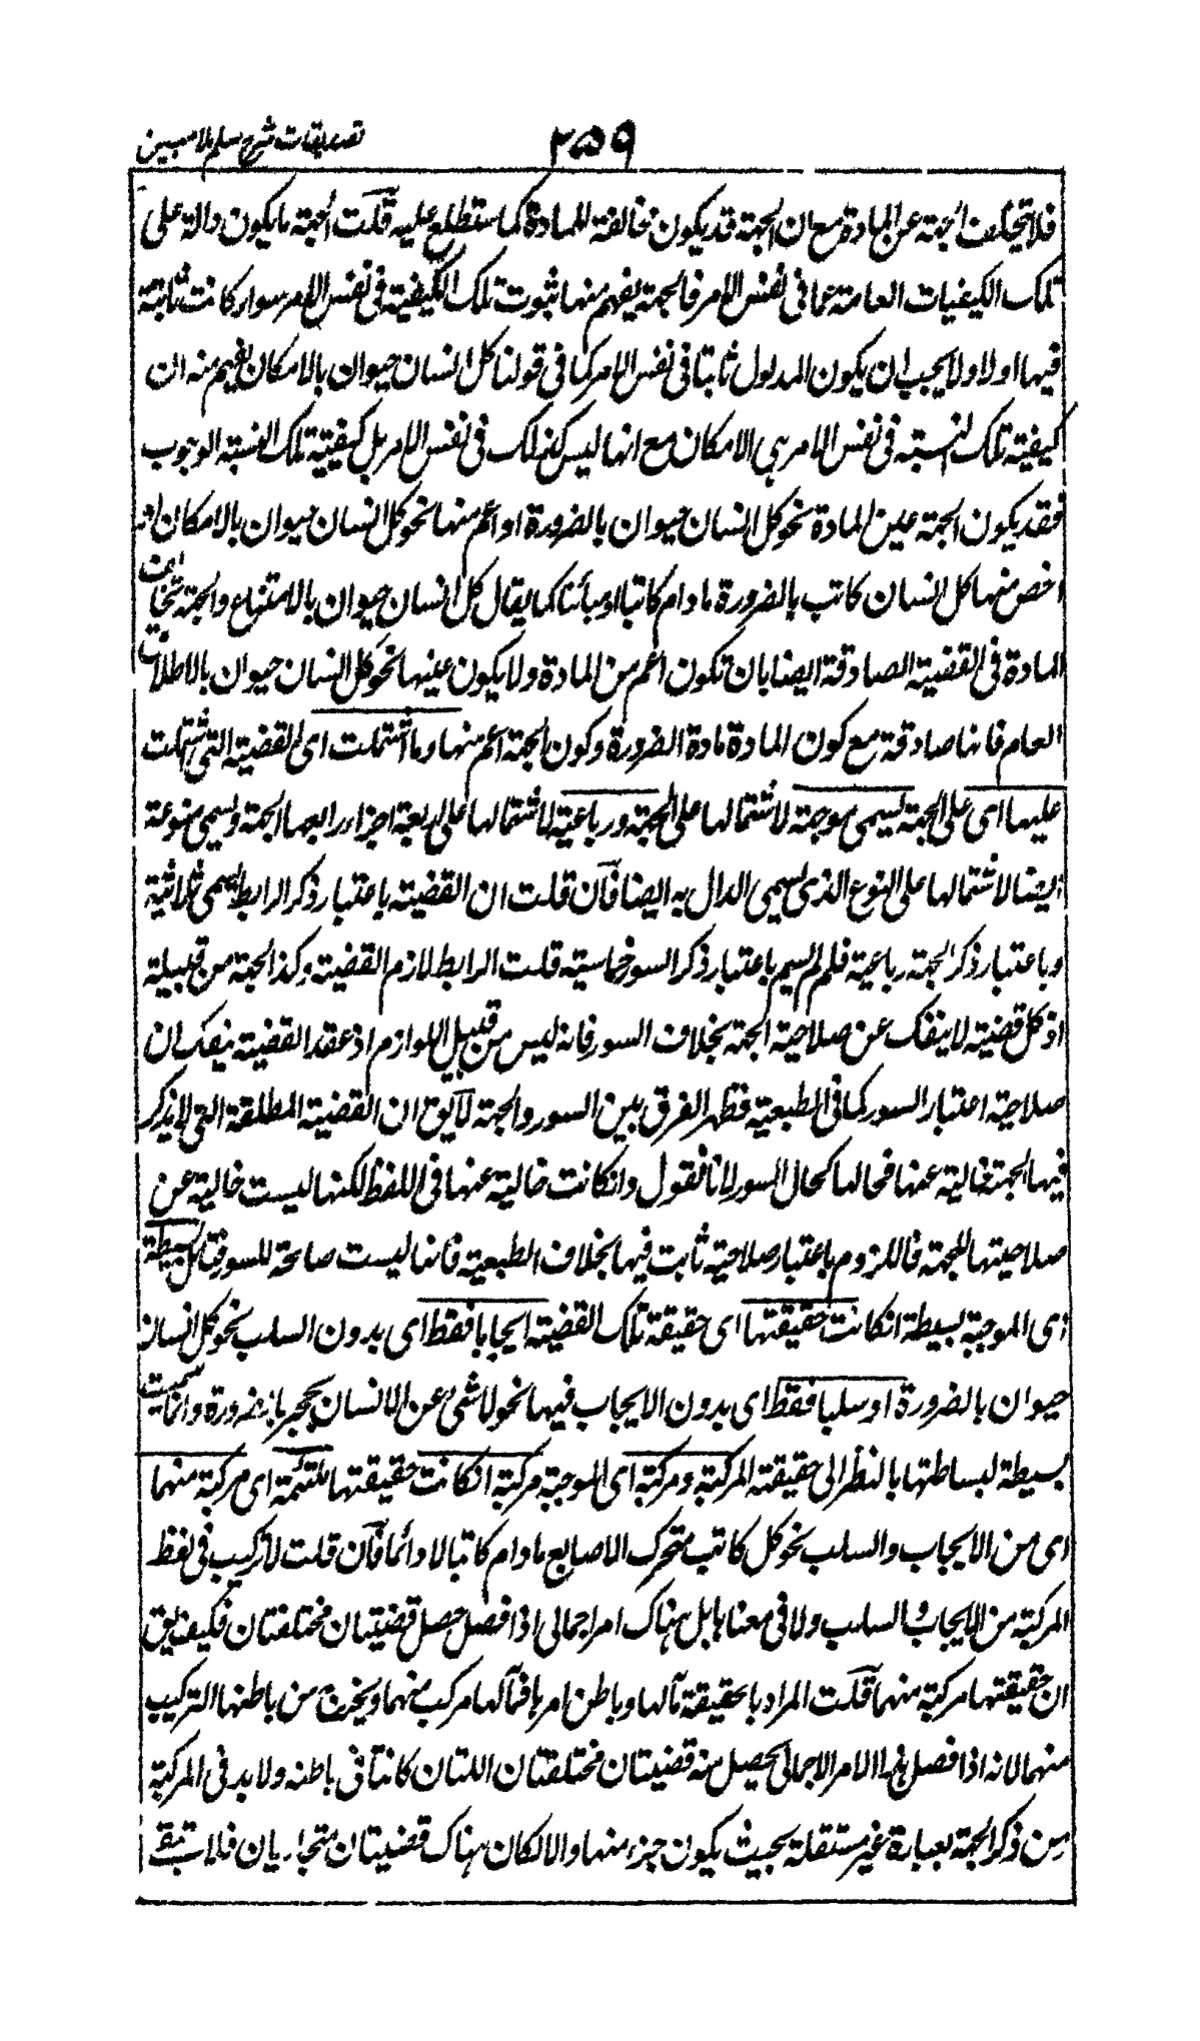 تصديقات شرح سلم ملا مبين
٢٥٩
فلا تختلف الجهة عن المادة مع ان الجهة قد يكون مخالفة للمادة كما ستطلع عليه قلت الجهة ما يكون دالة على
تلك الكيفيات العامة عما فى نفس الامر فالجهة يفهم منها ثبوت تلك الكيفية فى نفس الامر سواء كانت ثابتة
فيها اولا ولا يجب ان يكون المدلول ثابتا فى نفس الامر كما فى قولنا كل انسان حيوان بالامكان يفهم منه ان
كيفية تلك النسبة فى نفس الامر هى الامكان مع انها ليس كذلك فى نفس الامر بل كيفية تلك النسبة الوجوب
فقد يكون الجهة عين المادة نحو كل انسان حيوان بالضرورة او اعم منها نحو كل انسان حيوان بالامكان او
اخص منها كل انسان كاتب بالضرورة ما دام كاتبا او مبائنا كما يقال كل انسان حيوان بالامتناع والجهة تخالف
المادة فى القضية الصادقة ايضا بان تكون اعم من المادة ولا يكون عينها نحو كل انسان حيوان بالاطلاق
العام فانها صادقة مع كون المادة مادة الضرورة وكون الجهة اعم منها وما اشتملت اى القضية التى اشتملت
عليها اى على الجهة تسمى موجهة لاشتمالها على الجهة ورباعية لاشتمالها على اربعة اجزاء رابعها الجهة وتسمى منوعة
ايضا لاشتمالها على النوع الذى يسمى الدال به ايضا فان قلت ان القضية باعتبار ذكر الرابط يسمى ثلاثية
وباعتبار ذكر الجهة رباعية فلم لم يسم باعتبار ذكر السور خماسية قلت الرابط لازم القضية وكذا الجهة من قبيلة
اذ كل قضية لا ينفك عن صلاحية الجهة بخلاف السور فانه ليس من قبيل اللوازم اذ عقد القضية ينفك ان
صلاحية اعتبار السور كما فى الطبعية فظهر الفرق بين السور والجهة لا يق ان القضية المطلقة التى لا يذكر
فيها الجهة خالية عنها فحالها كحال السور لانا نقول وان كانت خالية عنها فى اللفظ لكنها ليست خالية عن
صلاحيتها للجهة فاللزوم باعتبار صلاحية ثابت فيها بخلاف الطبعية فانها ليست صالحة للسور فتامل بسيطة
اى الموجهة بسيطة ان كانت حقيقتها اى حقيقة تلك القضية ايجابا فقط اى بدون السلب نحو كل انسان
حيوان بالضرورة او سلبا فقط اى بدون الايجاب فيها نحو لا شئ عن الانسان بحجر بالضرورة وانما سميت
بسيطة لبساطتها بالنظر الى حقيقة المركبة ومركبة اى الموجهة مركبة ان كانت حقيقتها ملتئمة اى مركبة منهما
اى من الايجاب والسلب نحو كل كاتب متحرك الاصابع ما دام كاتبا لا دائما فان قلت لا تركيب فى لفظ
المركبة من الايجاب والسلب ولا فى معناها بل هناك امر اجمالى اذا فصل حصل قضيتان مختلفتان فكيف يق
ان حقيقتها مركبة منهما قلت المراد بالحقيقة مآلها وباطن امرها فمآلها مركب منهما ويخرج من باطنها التركيب
منهما لانه اذا فصل هذا الامر الاجمالى يحصل منه قضيتان مختلفتان اللتان كانتا فى باطنه ولا بد فى المركبة
من ذكر الجهة بعبارة غير مستقلة بحيث يكون جزء منها والا لكان هناك قضيتان متجاريان فلا تبقى